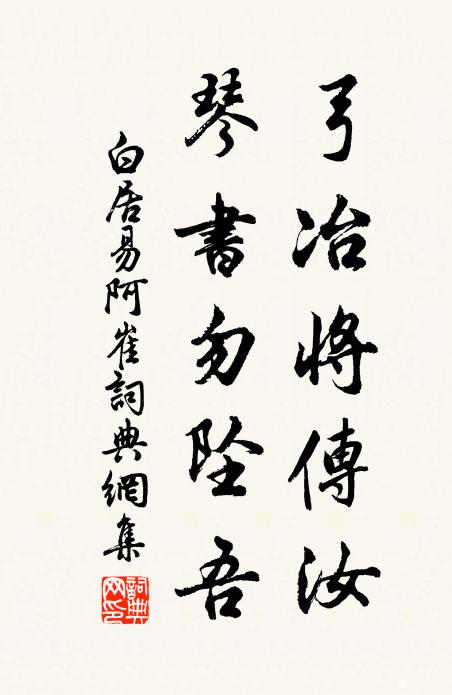 弓冶將傳汝
琴書勿坠吾
白居易阿崔詞典網集
詞典网印